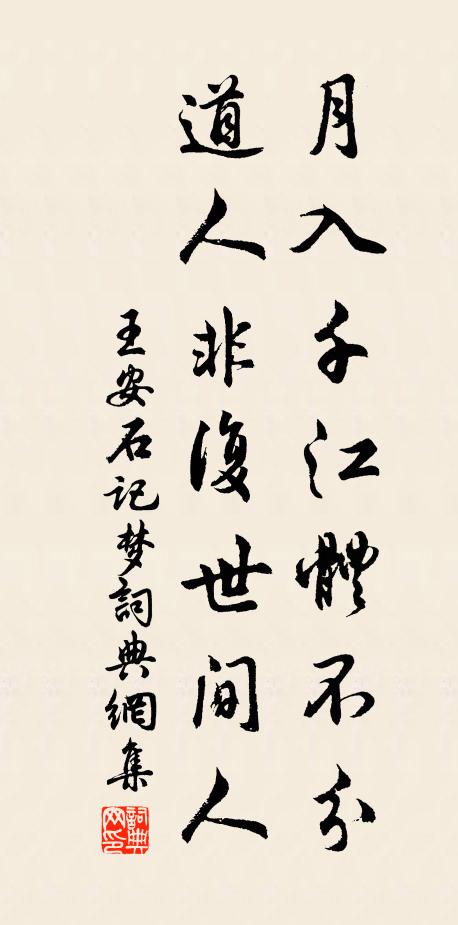 月入千江體不分
道人非復世間人
王安石记梦詞典網集
詞典网印